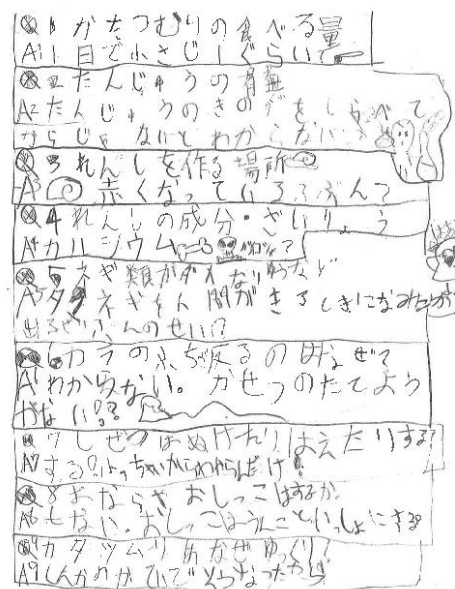 Q1かたつむりの食べる量
A1 1日で小さじ1ぐらい?
Q2たんじゅうの有無
A2たんじゅうのきのうをしらべて
からじゃないとわからない
Q3れんしを作る場所
A3 赤くなっているぶぶん?
Q4れんしの成分・ざいりょう
A4カルシウム
Q5ネギ類がダメなりゆう
A5タマネギを人間がきるときになみだが
出るせいぶんのせい!?
カラのふちが反るのはなぜ?
A6わからない。かせつのたてよう
がない!??
Q7しぜつはぬけたりはえたりする?
A7する?
Q8 おならやおしっこはするか
しない。おしっこはうんこといっしょにする
Q9カタツムリはなぜゆっくり?
A9しんかのかていでそうなったから